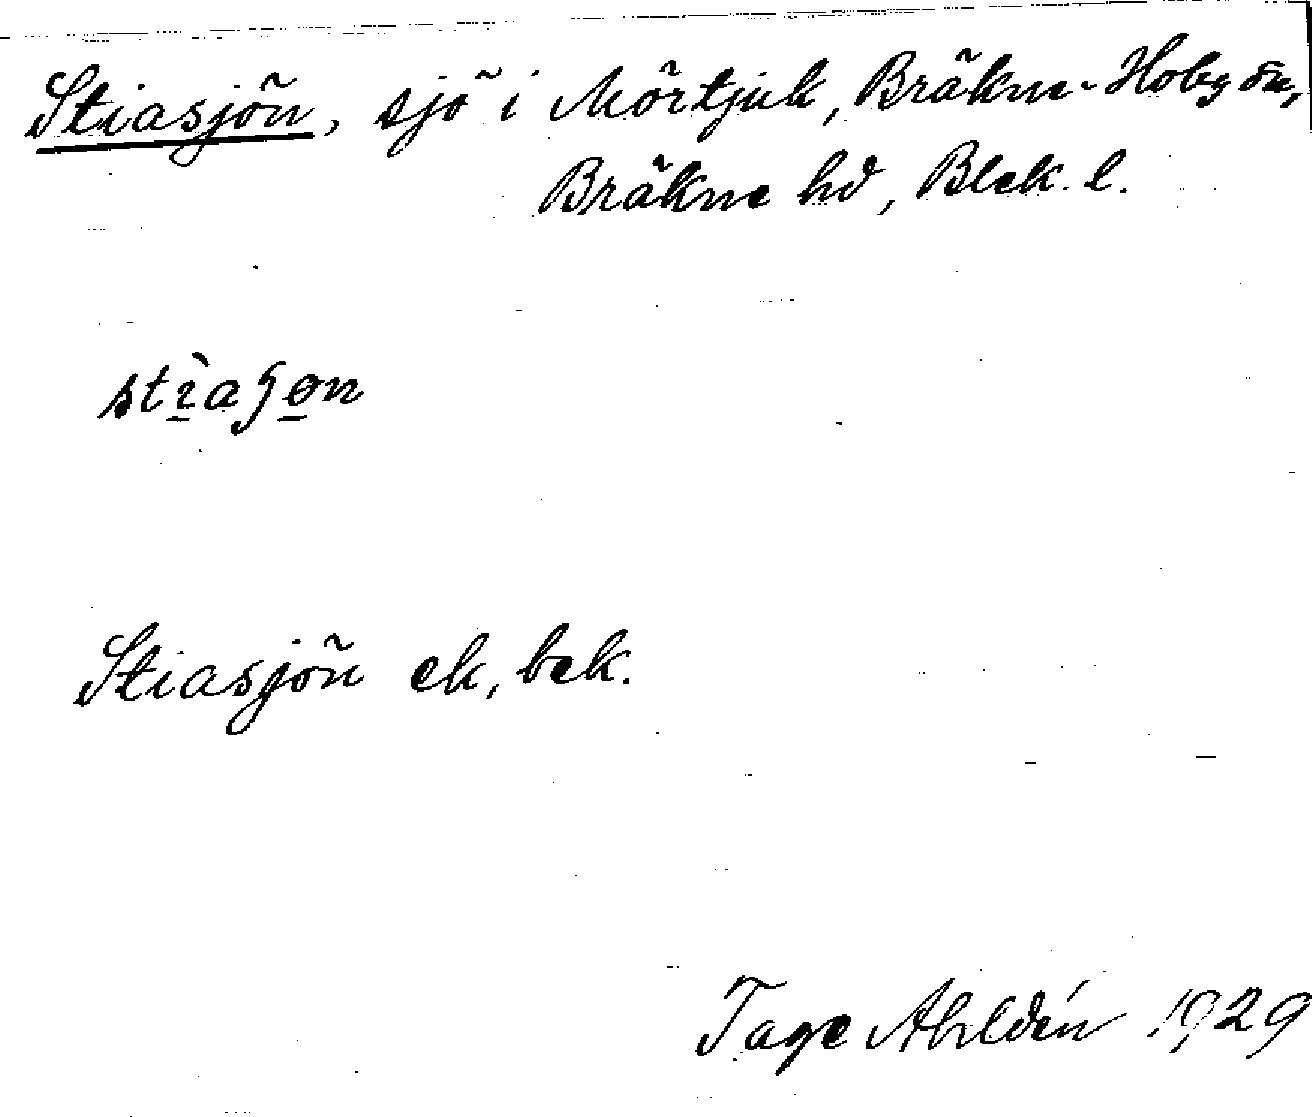 Stiasjön, sjö i Mörtjuk, Bräkne-Hoby sn,
Bräkne hd, Blek. l.
stìaʃøn
Stiasjön ek, bek.
Tage Ahldén 1929